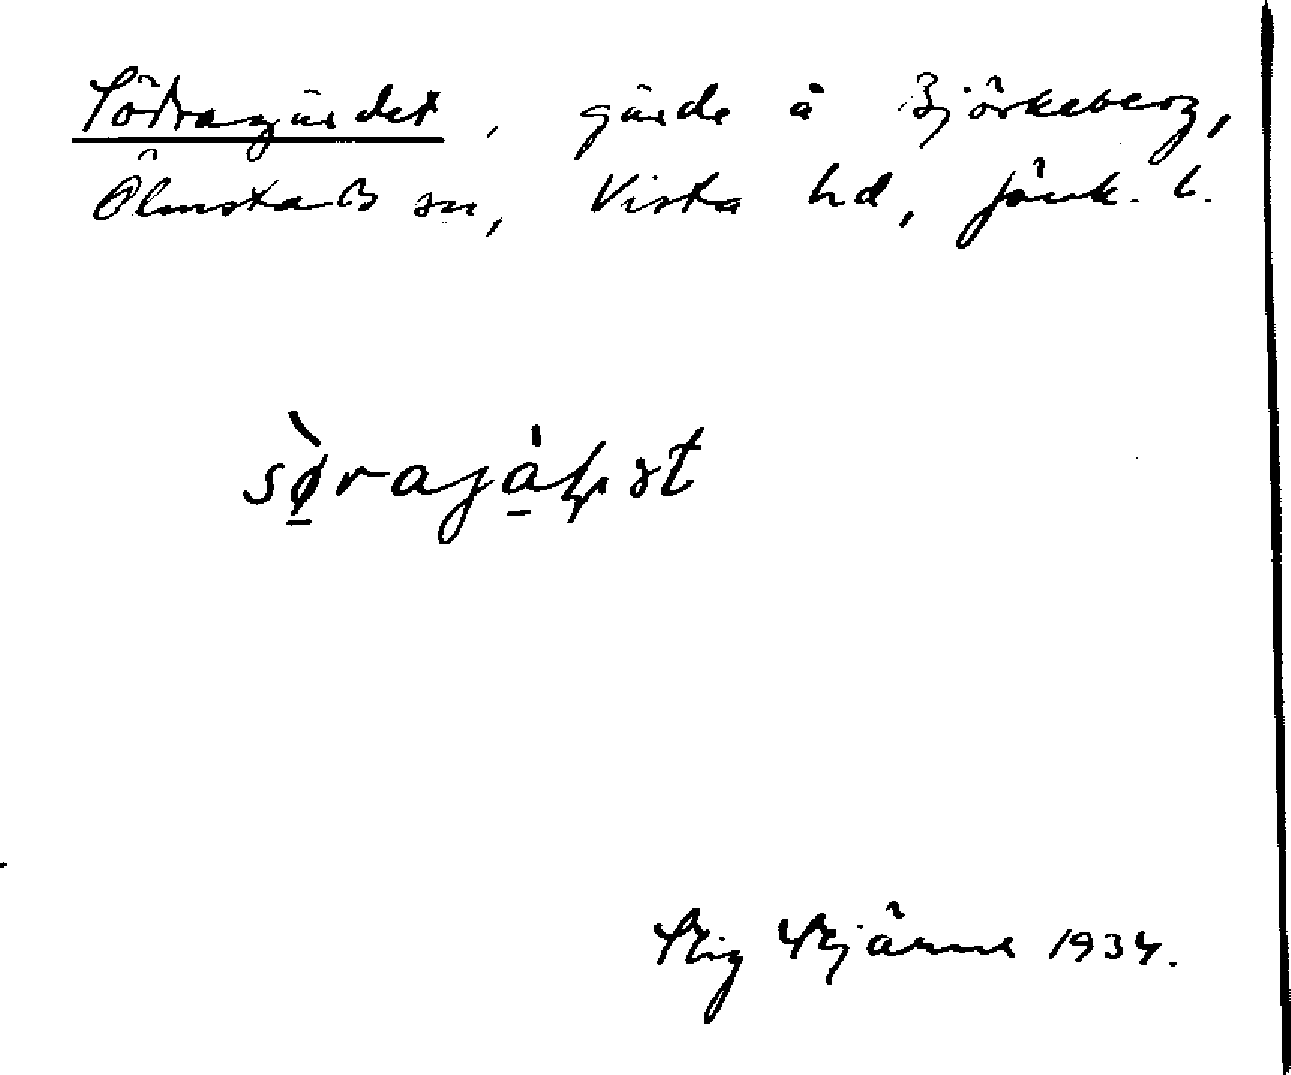 Södragärdet, gärde å Björkeberg,
Ölmstad sn, Vista hd, Jönk. l.
Stig Stjärne 1934.